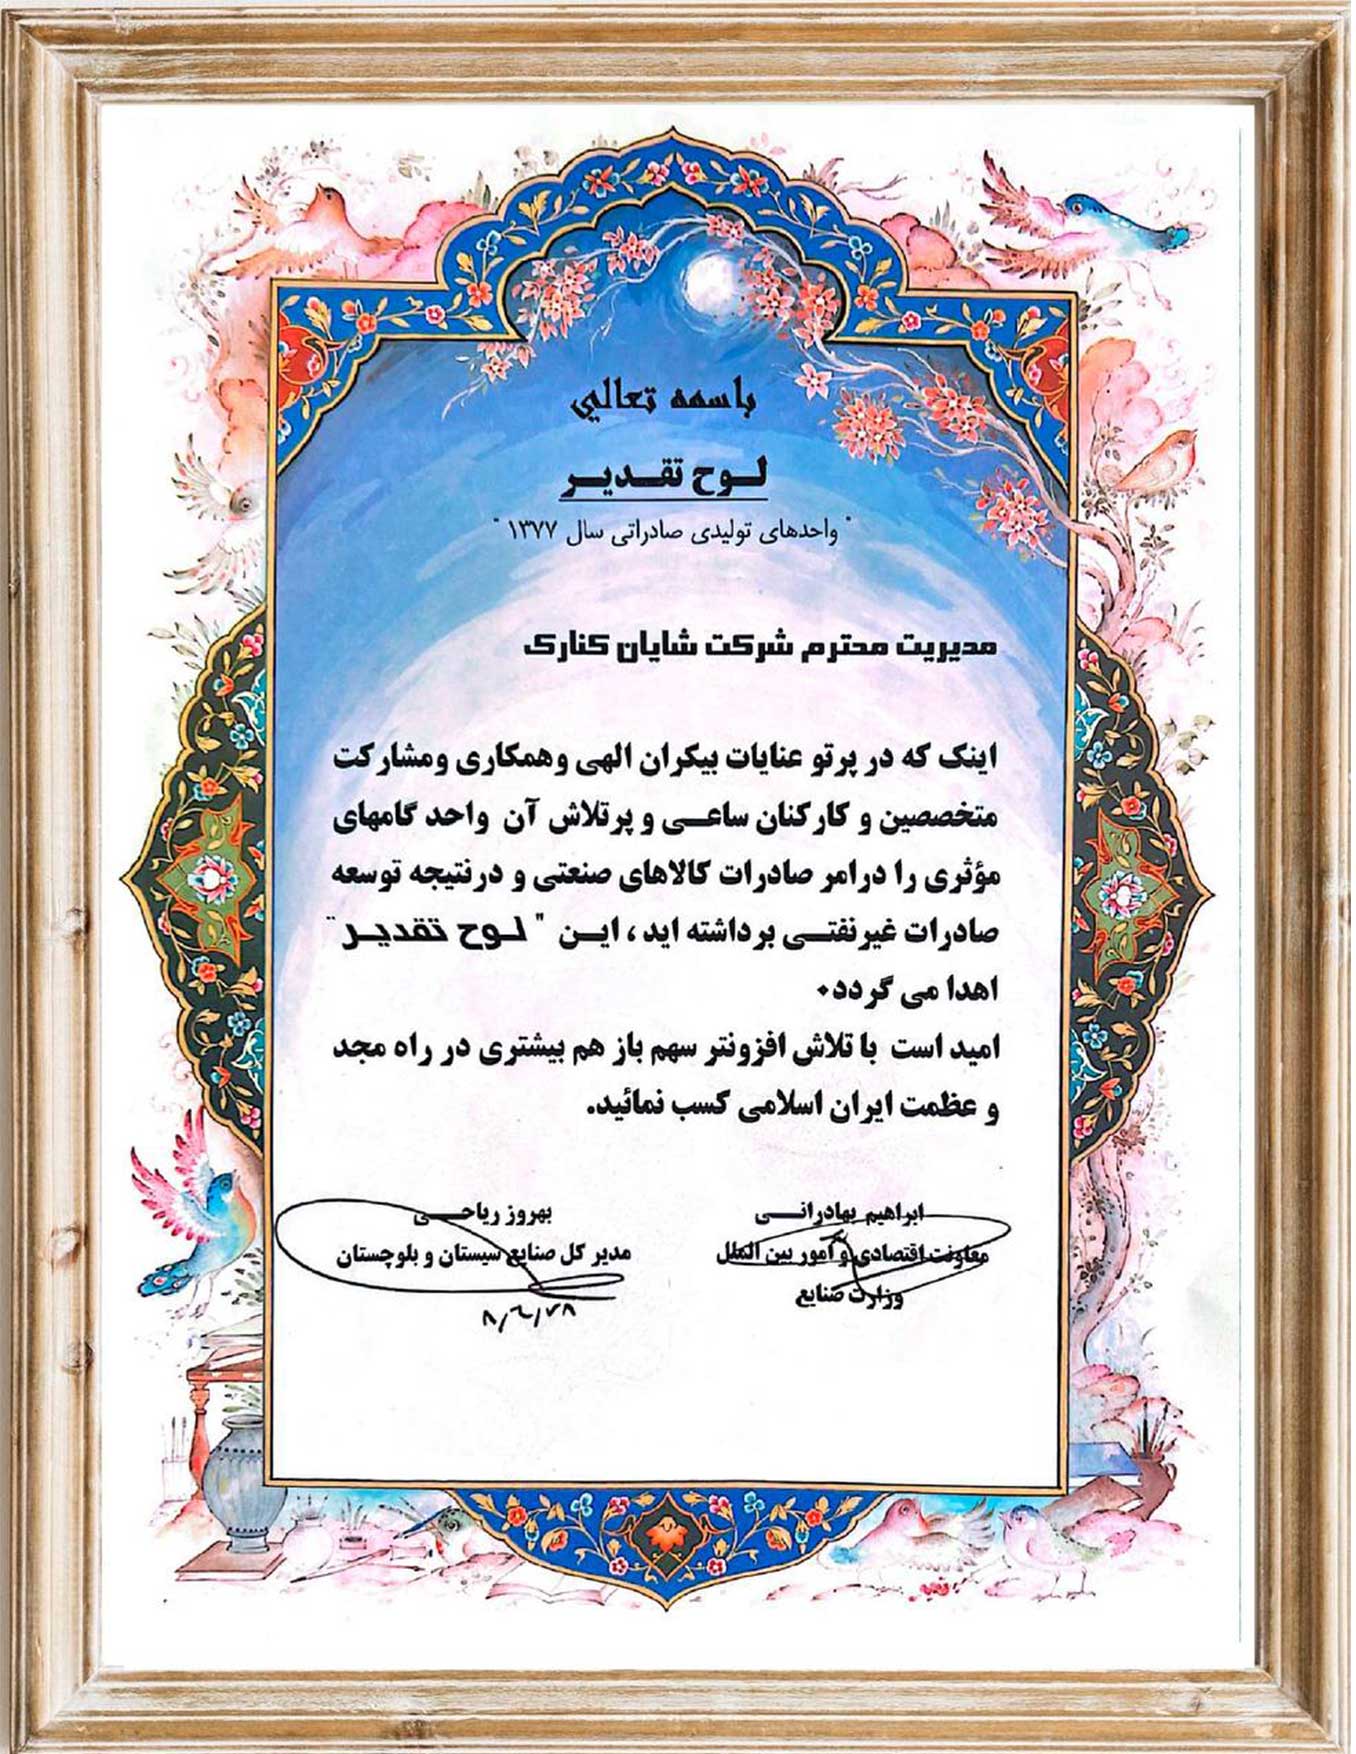 باسمه تعالي
لوح تقدیر
" واحدهای تولیدی صادراتی سال ۱۳۷۷ "
مدیریت محترم شرکت شایان کنارک
اینک که در پرتو عنایات بیکران الهی وهمکاری ومشارکت
متخصصین و کارکنان ساعی و پرتلاش آن واحد گامهای
مؤثری را درامر صادرات کالاهای صنعتی و درنتیجه توسعه
صادرات غیرنفتی برداشته اید ، این " لوح تقدیر "
اهدا می گردد.
امید است با تلاش افزونتر سهم باز هم بیشتری در راه مجد
و عظمت ایران اسلامی کسب نمائید.
ابراهیم بهادرانی
معاونت اقتصادی و امور بین الملل
وزارت صنایع
بهروز ریاحی
مدیر کل صنایع سیستان و بلوچستان
۷۸/۶/۸